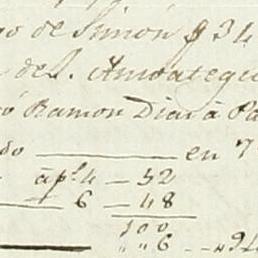 go de Simon $ 34
de S. Amoategui
ó Ramon Diaz à Pa
do ______ en 7
apl. 4 — 52
6 — 48
100
" " 6 — 94